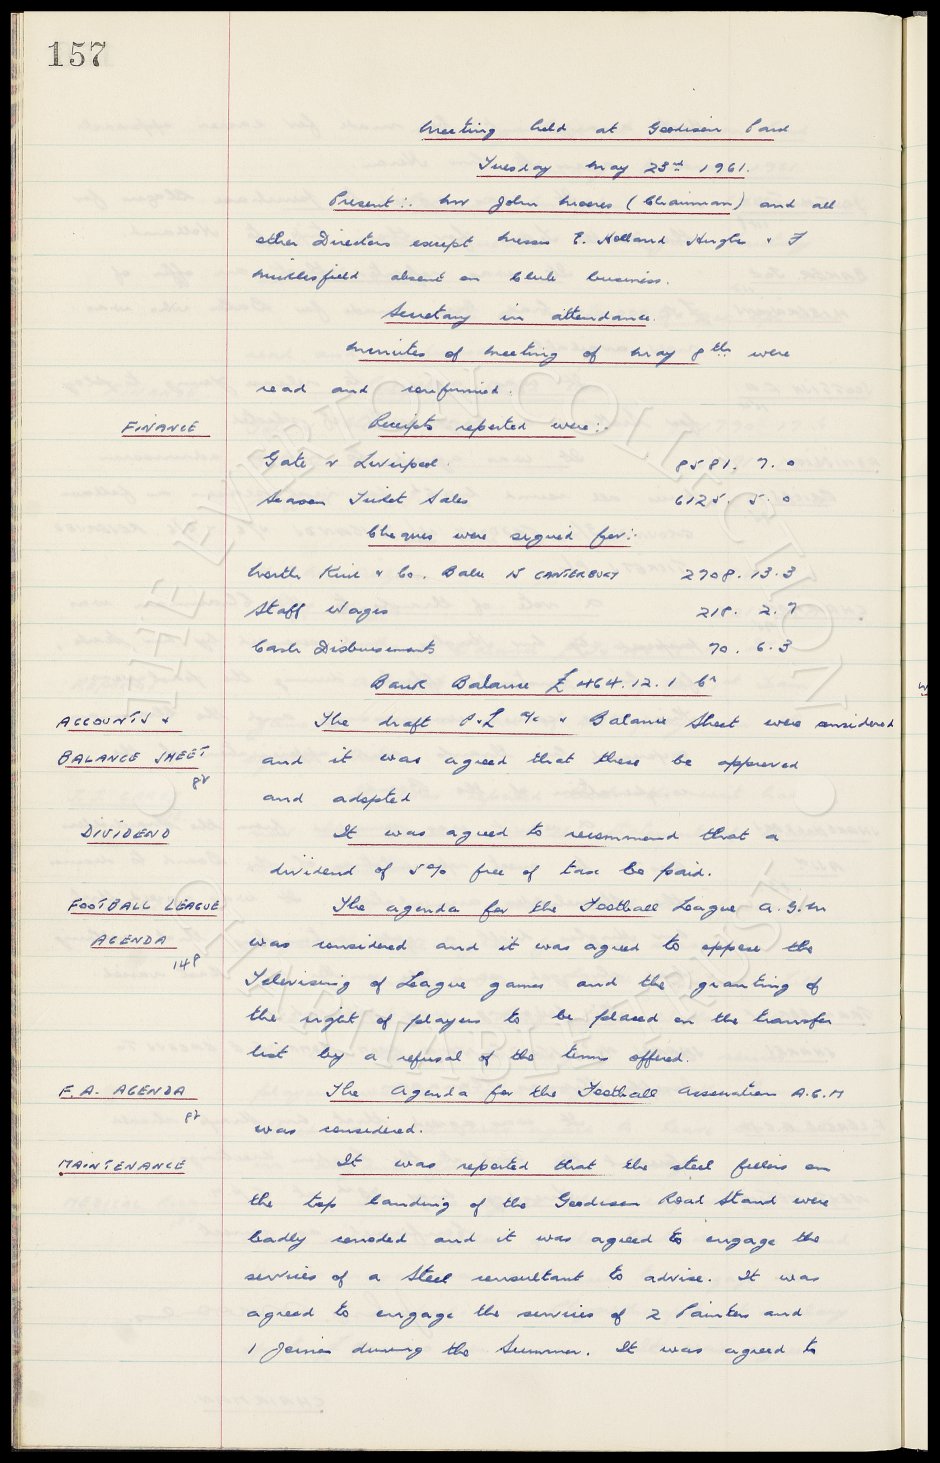 157
Meeting held at Goodison Park
Tuesday May 23rd 1961.
Present:. Mr John Moores (Chairman) and all
other Directors except Messrs E. Holland Hughes & F
Micklesfield absent on Club business.
Secretary in attendance.
Minutes of Meeting of May 8th were
read and confirmed.
FINANCE Receipts reported were:.
Gate v Liverpool. 8581. 7. 0
Season Ticket Sales 6125. 5. 0
Cheques were signed for:.
North Kirk & Co. Bale N CANTERBURY 2708. 13. 3
Staff Wages 218. 2. 7
Cash Disbursements 70. 6. 3
Bank Balance £ 464. 12. 1 Cr
ACCOUNTS & The draft P&L a/c & Balance Sheet were considered
BALANCE SHEET and it was agreed that these be approved
82
and adopted
DIVIDEND It was agreed to recommend that a
dividend of 5% free of tax be paid.
FOOTBALL LEAGUE The agenda for the Football League A.G.M
AGENDA was considered and it was agreed to oppose the
148 Televising of League games and the granting of
the right of players to be placed on the transfer
list by a refusal of the terms offered.
F.A. AGENDA The Agenda for the Football Association A.G.M
82 was considered.
MAINTENANCE It was reported that the steel fillers on
the top landing of the Goodison Road Stand were
badly corroded and it was agreed to engage the
services of a Steel consultant to advise. It was
agreed to engage the services of 2 Painters and
1 Joiner during the Summer. It was agreed to
EVERTON COLLECTION
CHARITABLE TRUST